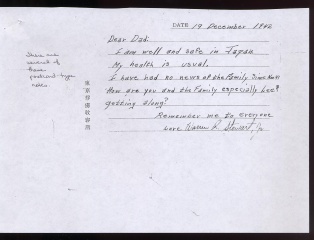 DATE 19 December 1942
Dear Dad:
I am well and safe in Japan
My health is usual.
I have had no news of the Family Since
How are you and the Family especially Lee?
getting along?
Remember me to everyone
Love Warren R. Stewart Jr
There are
several of
these
postcard-type
notes
東京俘虜収容所